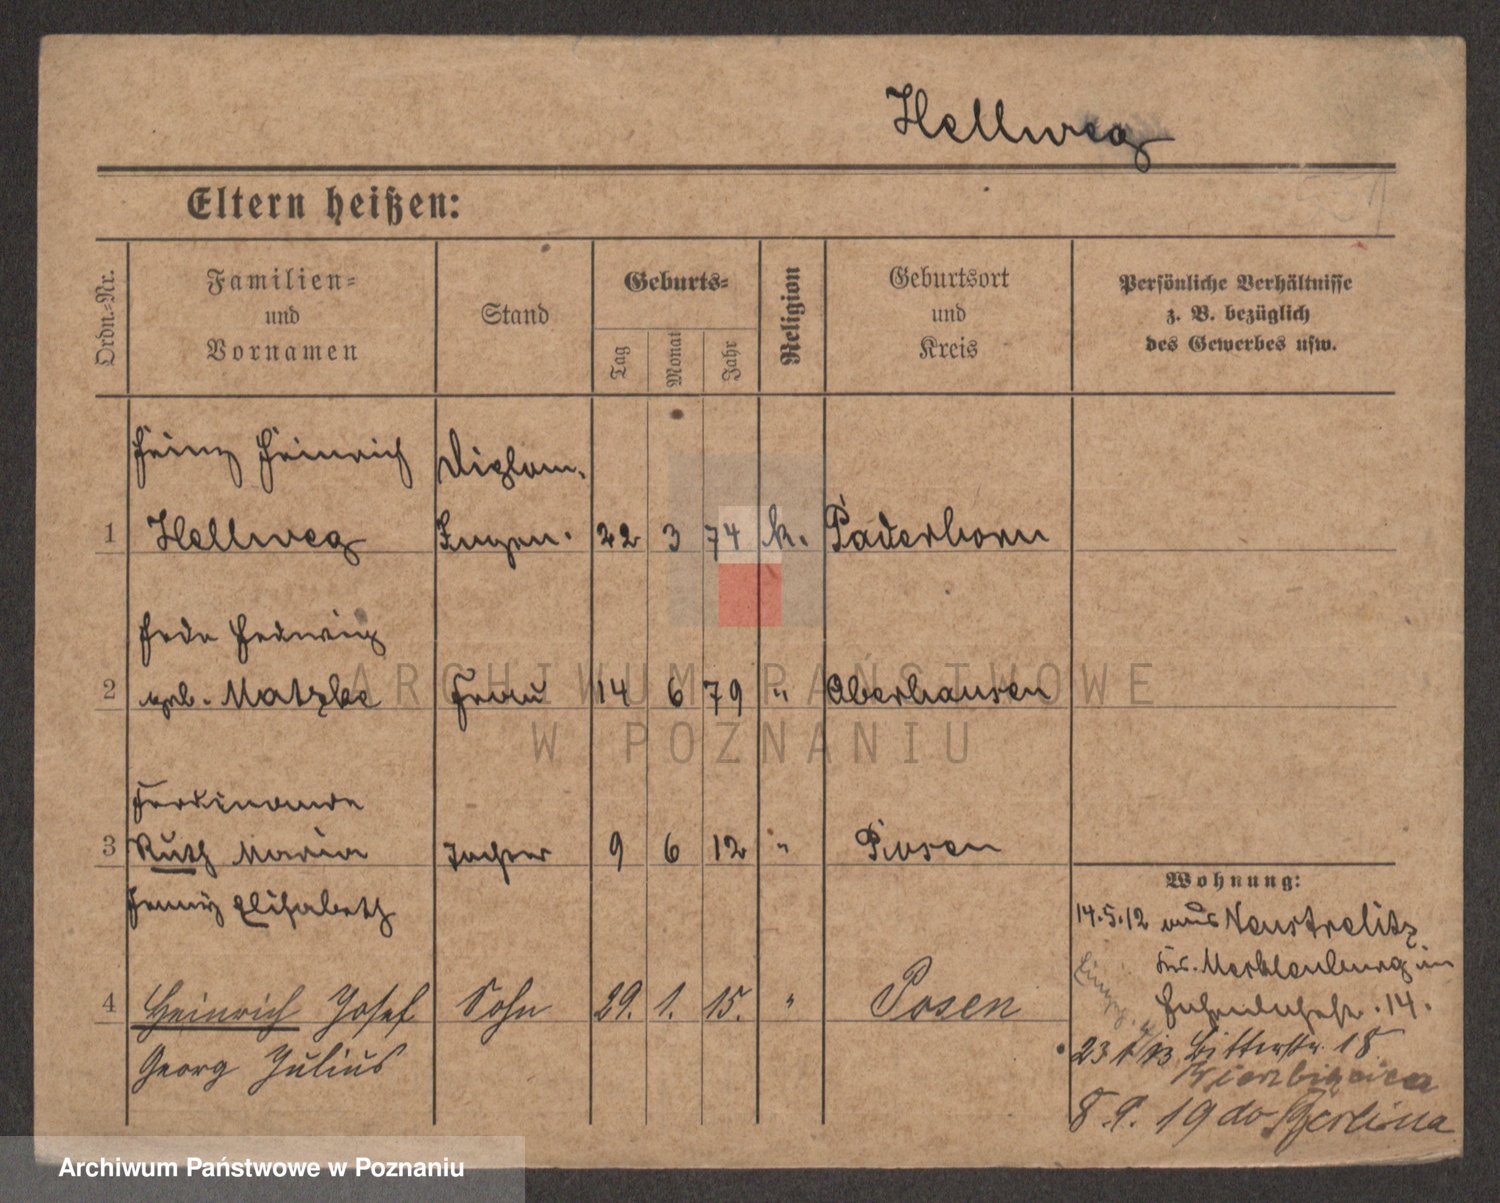 Hellweg
Eltern heißen:
Ordn.=Nr.
Familien=
und
Vornamen
Stand
Geburts=
Tag
Monat
Jahr
Religion
Geburtsort
und
Kreis
Persönliche Verhältnisse
z. B. bezüglich
des Gewerbes usw.
Heinz Heinrich Diplom.
1 Hellweg Ingen. 22 3 74 k. Paderborn
Hedwig
2 geb. Matzke Frau 14 6 79 " Oberhausen
Ferdinande
3 Ruth Maria Tochter 9 6 12 " Posen
Jenny Elisabeth
4 Heinrich Josef Sohn 29. 1. 15. " Posen
Georg Julius
Wohnung:
14.5.12 aus Neustrelitz
Mecklenburg in
14.
23 13 Bitterstr. 18
Wierzbięcica
8.9.19 do Berlina
ARCHIWUM PAŃSTWOWE
W POZNANIU
Archiwum Państwowe w Poznaniu